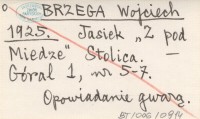 BRZEGA Wojciech
1925. Jasiek „Z pod
Miedze" Stolica.
Góral 1, nr 5-7.
Opowiadanie gwarą.
BT/006/0914